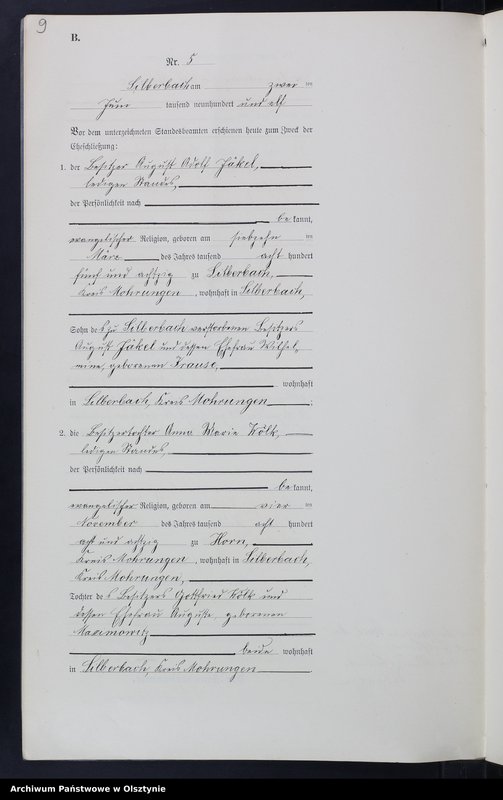 9
B.
Nr. 5
Silberbach am zwei ten
Juni tausend neunhundert und elf
Vor dem unterzeichneten Standesbeamten erschienen heute zum Zweck der
Eheschließung:
1. der Besitzer August Adolf Jäkel,
ledigen Standes,
der Persönlichkeit nach
be kannt,
evangelischer Religion, geboren am siebzehn ten
März des Jahres tausend acht hundert
fünf und achtzig zu Silberbach,
Kreis Mohrungen, wohnhaft in Silberbach,
Sohn des zu Silberbach verstorbenen Besitzers
August Jäkel und dessen Ehefrau Wilhel-
mine, geborenen Krause,
wohnhaft
in Silberbach, Kreis Mohrungen ;
2. die Besitzertochter Anna Marie Kölk,
ledigen Standes,
der Persönlichkeit nach
be kannt,
evangelischer Religion, geboren am vier ten
November des Jahres tausend acht hundert
acht und achtzig zu Horn,
Kreis Mohrungen, wohnhaft in Silberbach,
Kreis Mohrungen,
Tochter des Besitzers Gottfried Kölk und
dessen Ehefrau Auguste, geborenen
Maximowitz
beide wohnhaft
in Silberbach, Kreis Mohrungen .
Archiwum Państwowe w Olsztynie